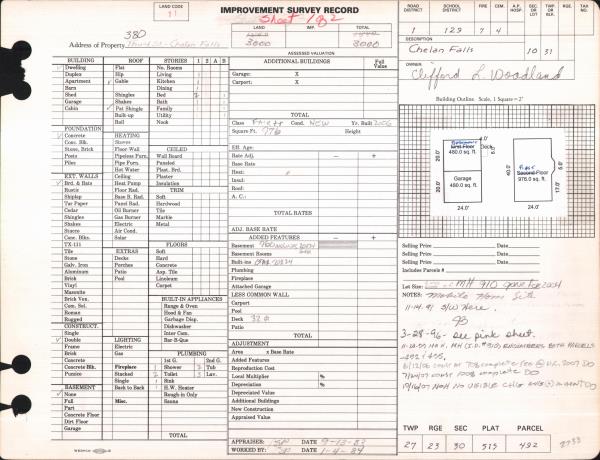 LAND CODE
11
IMPROVEMENT SURVEY RECORD
Sheet 1 of 2
380
Address of Property Third St. - Chelan Falls
LAND IMP. TOTAL
3000 3000
ASSESSED VALUATION
ROAD DISTRICT SCHOOL DISTRICT FIRE CEM. A.P. HOSP. SEC. OR LOT SEC. OR BLK RGE. TAX NO.
1 129 7 4
DESCRIPTION
Chelan Falls 10 31
OWNER
Clifford L. Woodland
Building Outline. Scale, 1 Square = 2'
BUILDING ROOF STORIES 1 2 A B
Dwelling Flat No. Rooms
Duplex Hip Living
Apartment Gable Kitchen
Barn Dining
Shed Shingles Bed
Garage Shakes Bath
Cabin Pat Shingle Family
Built-up Utility
Roll Nook
FOUNDATION
Concrete HEATING
Conc. Blk. Stoves CEILED
Stone, Brick Floor Wall Wall Board
Posts Pipeless Furn. Paneled
Piles Pipe Furn. Plast. Brd.
Hot Water Plaster
EXT. WALLS Ceiling Insulation
Brd. & Bats Heat Pump TRIM
Rustic Floor Rad. Soft
Shiplap Base B. Rad. Hard
Tar Paper Panel Rad. Hardwood
Cedar Oil Burner Tile
Shingles Gas Burner Marble
Shakes Electric Metal
Stucco Air Cond.
Conc. Blks. Solar
TX-111 FLOORS
Tile EXTRAS Soft
Stone Decks Hard
Galv. Iron Porches Concrete
Aluminum Patio Asp. Tile
Brick Pool Linoleum
Vinyl Carpet
Masonite
Brick Ven. BUILT-IN APPLIANCES
Com. Sel. Range & Oven
Roman Hood & Fan
Rugged Garbage Disp.
CONSTRUCT. Dishwasher
Single Inter Com.
Double LIGHTING Bar-B-Que
Frame Electric
Brick Gas PLUMBING
Concrete 1st G. 2nd G.
Concrete Blk. Fireplace Shower Tub
Pumice Stacked Toilet Lav.
Single Sink
BASEMENT Back to Back H.W. Heater
None Rough-in Only
Full Misc. Sauna
Part
Concrete Floor
Dirt Floor
Garage TOTAL
ADDITIONAL BUILDINGS Full Value
Garage: X
Carport: X
TOTAL
Class Fair + Cond. NEW Yr. Built 2006
Square Ft. 976 Height
Eff. Age:
Rate Adj. – +
Base Rate
Heat:
Insul:
Roof:
A. C.:
TOTAL RATES
ADJ. BASE RATE
ADDED FEATURES – +
Basement
Basement Rooms
Built-ins
Plumbing
Fireplace
Attached Garage
LESS COMMON WALL
Carport
Pool
Deck 32
Patio
TOTAL
ADJUSTMENT
Area x Base Rate
Added Features
Reproduction Cost
Local Multiplier %
Depreciation %
Depreciated Value
Additional Buildings
New Construction
Appraised Value
APPRAISER: DATE 9-13-83
WORKED BY: DATE 1-4-84
4.0'
Deck
20.0'
480.0 sq. ft.
Garage
480.0 sq. ft.
20.0'
24.0'
First
Second Floor
976.0 sq. ft.
40.0'
17.0'
5.0'
24.0'
Selling Price Date
Selling Price Date
Selling Price Date
Includes Parcels #
Lot Size:
NOTES: Mobile Home Site
11-14-91 S/W Here.
3-28-96- see pink sheet.
TWP RGE SEC PLAT PARCEL
27 23 30 515 492